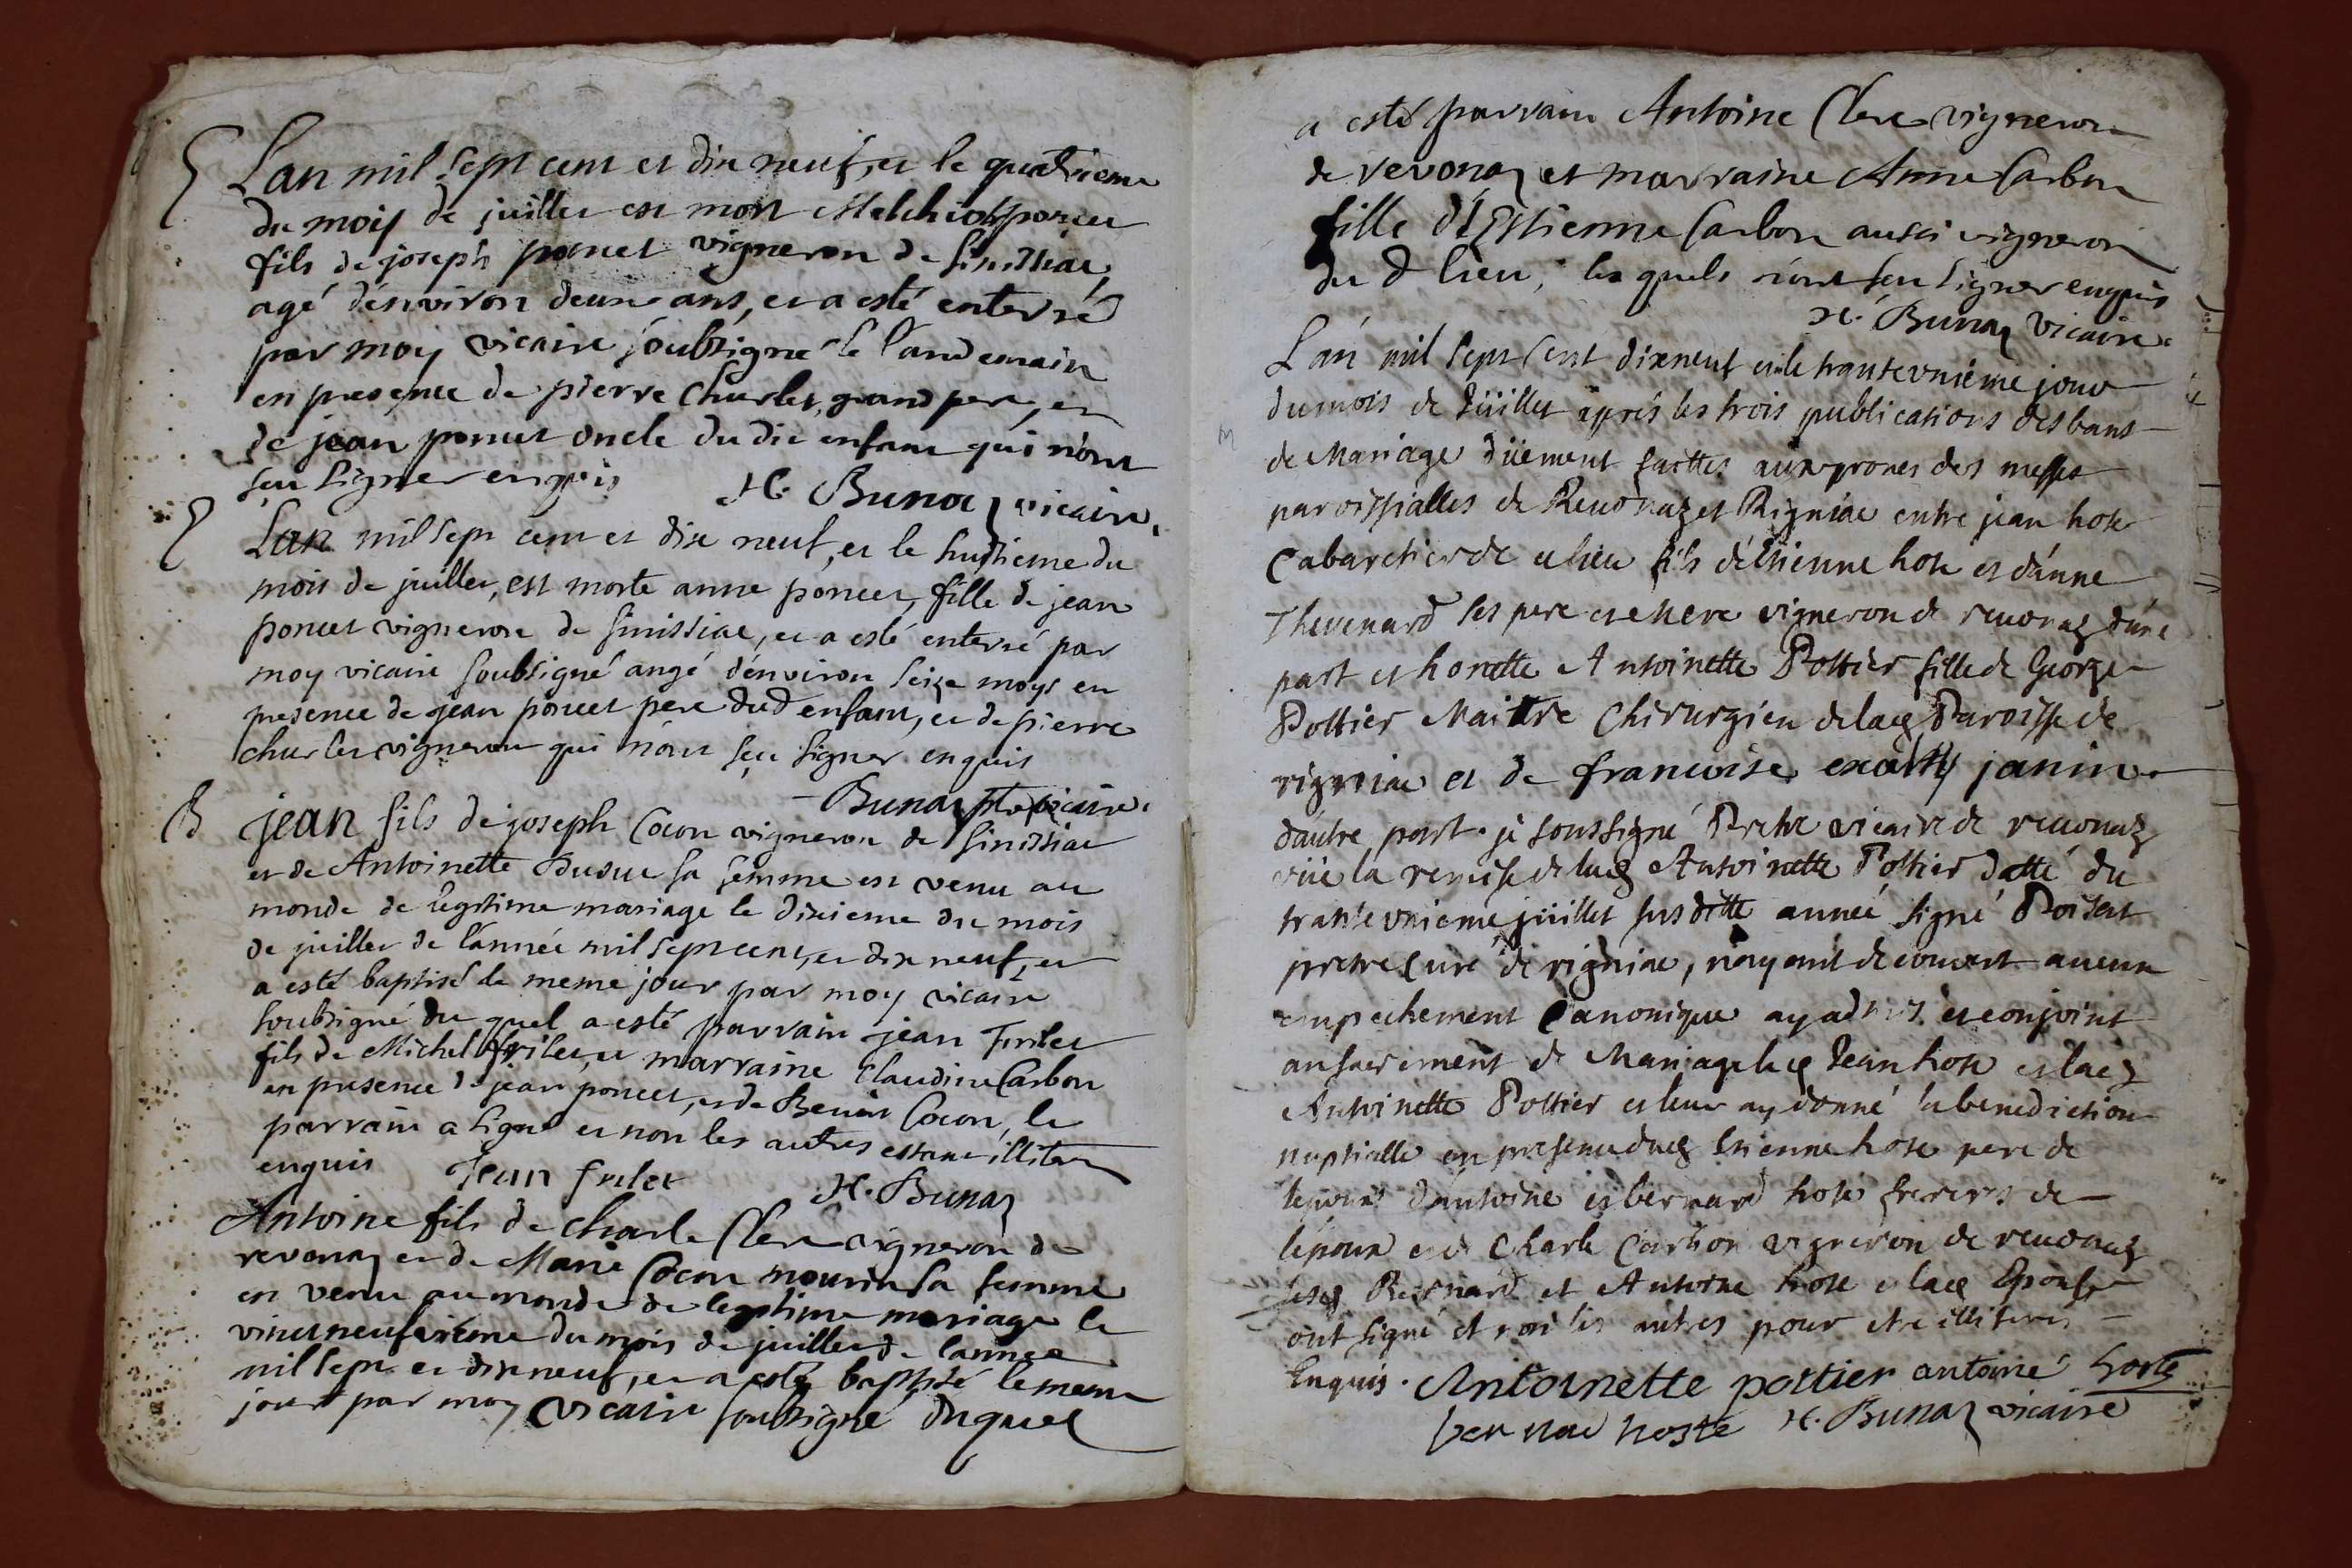 Lan mil sept cent et dix neuf, et le quatrieme
du mois de juillet est mort Melchiol poncet
fils de joseph poncet vigneron de sinissiac,
agé d'environ deux ans, et a esté enterré
par moy vicaire soubsigné le l'andemain
en presence de pierre Churlet, grand pere, et
de jean poncet oncle du dit enfant qui n'ont
seu signer enquis H. Bunaz vicaire.
Lan mil sept cent et dix neuf, et le huitieme du
mois de juillet, est morte anne poncet, fille de jean
poncet vigneron de sinissiac, et a esté enterré par
moy vicaire soubsigné angé d'environ seize moys en
presence de jean poncet pere dud enfant, et de pierre
churlet vigneron qui n'ont seu signer enquis
Bunaz ptre vicaire.
B jean fils de joseph Cocon vigneron de sinissiac
et de Antoinette Buduc sa femme est venu au
monde de legitime mariage le dixieme du mois
de juillet de l'année mil sept cent, et dix neuf, et
a esté baptisé le meme jour par moy vicaire
soubsigné du quel a esté parrain jean Frilet
fils de Michel frilet, et marraine Claudine Carbon
en presence de jean poncet, et de Benoit Cocon, le
parrain a signé et non les autres estant illiteres
enquis Jean frilet H. Bunaz
Antoine fils de charle Clerc vigneron de
revonaz et de Marie Cocon mourin sa femme
est venu au monde de legitime mariage le
vint neufvieme du mois de juillet de l'annee
mil sept et dix neuf, et a esté baptisé le meme
jour par moy vicaire soubsigné duquel
a esté parrain Antoine Clerc vigneron
de revonaz et marraine Anne Carbon
fille d'Estienne Carbon aussi vigneron
du d lieu, les quels n'ont seu signer enquis
H. Bunaz vicaire.
L'an mil sept cent dixneuf et le trante uniéme jour
du mois de Juillet aprés les trois publications des bans
M de Mariage düement faittes aux prones des messes
parroissialles de Revonaz et Rigniac entre jean hote
Cabaretier de ce lieu fils d'etienne hote et d'anne
Thevenard ses pere et mere vigneron de revonaz d'une
part et honette Antoinette Pottier fille de George
Pottier Maitre Chirurgien de lad Paroisse de
rigniac et de francoise janin
d'autre part. je soussigné Pretre vicaire de revonaz
vüe la remise de lad Antoinette Pottier datté du
trante unieme juillet susditte année signé Poisat
pretre Curé de rigniac, n'ayant decouvert aucun
empechement Canonique ay admis et conjoint
au sacrement de Mariage led Jean hote et lad
Antoinette Pottier et leur ay donné la benediction
nuptialle en presence dud Etienne hote pere de
lepoux d'antoine et bernard hote freres de
lépoux et de Charle Carbon vigneron de revonaz
lesd Bernard et Antoine hote et lad Epouse
ont signé et non les autres pour etre illiteres
Enquis. Antoinette pottier antoine hoste
bernar hoste H. Bunaz vicaire